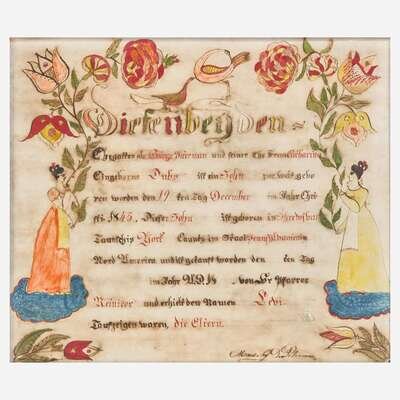 Diesen beyden
Ehegatten als George Hierman und seiner Ehe Frau Catharina
Eingeborne Duhs ist ein Sohn zur welt gebo
ren worden den 19 ten Tag December im Jahr Chri
sti 1845, Dieser Sohn ist geboren in
Taunschip York Caunty im Staat Pennsylvanien
Nord America und ist getauft worden den ten Tag
im Jahr A.D. 18 von Hr Pfarrer
Reineer und erhielt den Namen Levi
Taufzeigen waren, die Eltern.